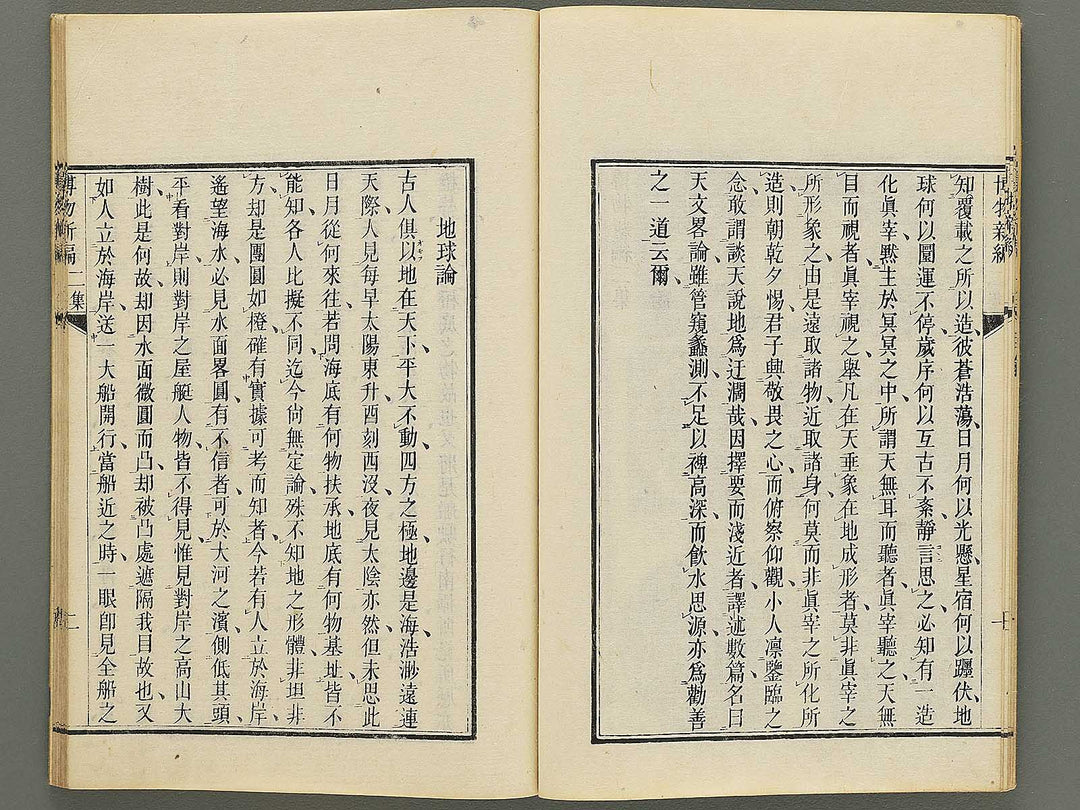 博物新編
知覆載之所以造、彼蒼浩蕩、日月何以光懸、星宿何以躔伏、地
球何以圜運不停、歲序何以互古不紊、靜言思之、必知有一造
化眞宰、黙主於冥冥之中、所謂天無耳而聽者、眞宰聽之、天無
目而視者、眞宰視之、舉凡在天垂象、在地成形者、莫非眞宰之
所形象之、由是遠取諸物、近取諸身、何莫而非眞宰之所化所
造、則朝乾夕惕、君子興敬畏之心、而俯察仰觀、小人凛鑒臨之
念、敢謂談天說地爲迂濶哉、因擇要而淺近者、譯述數篇、名曰
天文畧論、雖管窺蠡測、不足以裨高深、而飮水思源、亦爲勸善
之一道云爾、
地球論
古人俱以地在天下、平大不動、四方之極、地邊是海、浩渺遠連
天際、人見每早太陽東升、酉刻西沒、夜見太陰亦然、但未思此
日月從何來往、若問海底有何物扶承、地底有何物基址、皆不
能知、各人比擬不同、迄今尙無定論、殊不知地之形體、非坦非
方、却是團圓如橙、確有實據可考而知者、今若有人立於海岸、
遙望海水、必見水面畧圓、有不信者、可於大河之濱、側低其頭、
平看對岸、則對岸之屋艇人物、皆不得見、惟見對岸之高山大
樹、此是何故、却因水面微圓而凸、却被凸處遮隔我目故也、又
如人立於海岸、送一大船開行、當船近之時、一眼卽見全船之
博物新編二集
二